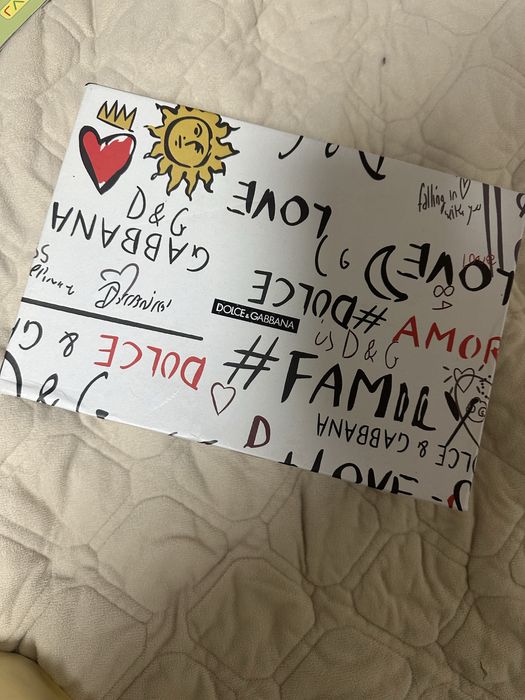 D&G
LOVE
falling in
with you
GABBANA
LOVE
#DOLCE
DOLCE&GABBANA
AMOR
is D&G
DOLCE & G
#FAMIL
D
DOLCE & GABBANA
LOVE